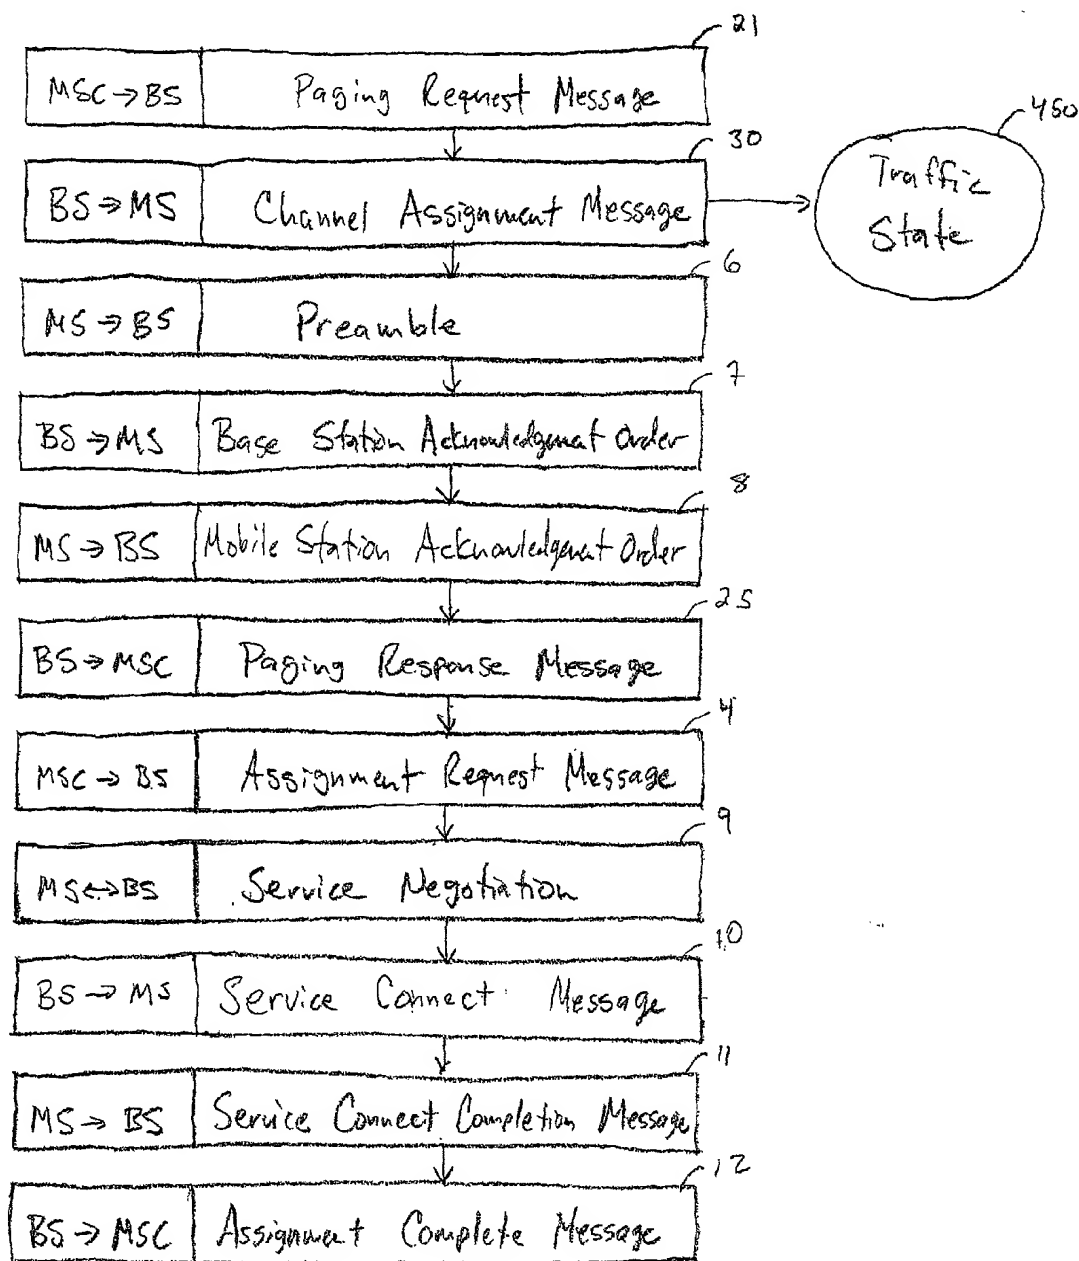 21
MSC → BS Paging Request Message
30
BS → MS Channel Assignment Message
450
Traffic
State
6
MS → BS Preamble
7
BS → MS Base Station Acknowledgment Order
8
MS → BS Mobile Station Acknowledgment Order
25
BS → MSC Paging Response Message
4
MSC → BS Assignment Request Message
9
MS ↔ BS Service Negotiation
10
BS → MS Service Connect Message
11
MS → BS Service Connect Completion Message
12
BS → MSC Assignment Complete Message